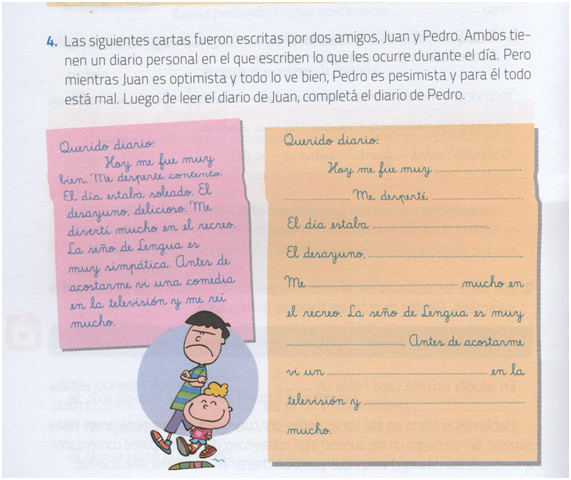 4. Las siguientes cartas fueron escritas por dos amigos, Juan y Pedro. Ambos tie-
nen un diario personal en el que escriben lo que les ocurre durante el día. Pero
mientras Juan es optimista y todo lo ve bien, Pedro es pesimista y para él todo
está mal. Luego de leer el diario de Juan, completá el diario de Pedro.
Querido diario:
Hoy me fue muy
bien. Me desperté contento.
El día estaba soleado. El
desayuno, delicioso. Me
divertí mucho en el recreo.
La seño de Lengua es
muy simpática. Antes de
acostarme vi una comedia
en la televisión y me reí
mucho.
Querido diario:
Hoy me fue muy
. Me desperté
El día estaba .
El desayuno,
Me mucho en
el recreo. La seño de Lengua es muy
. Antes de acostarme
vi un en la
televisión y
mucho.